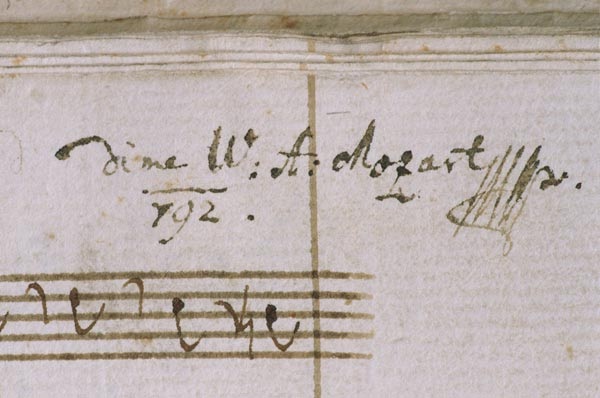 di me W: A: Mozart mpr.
792.